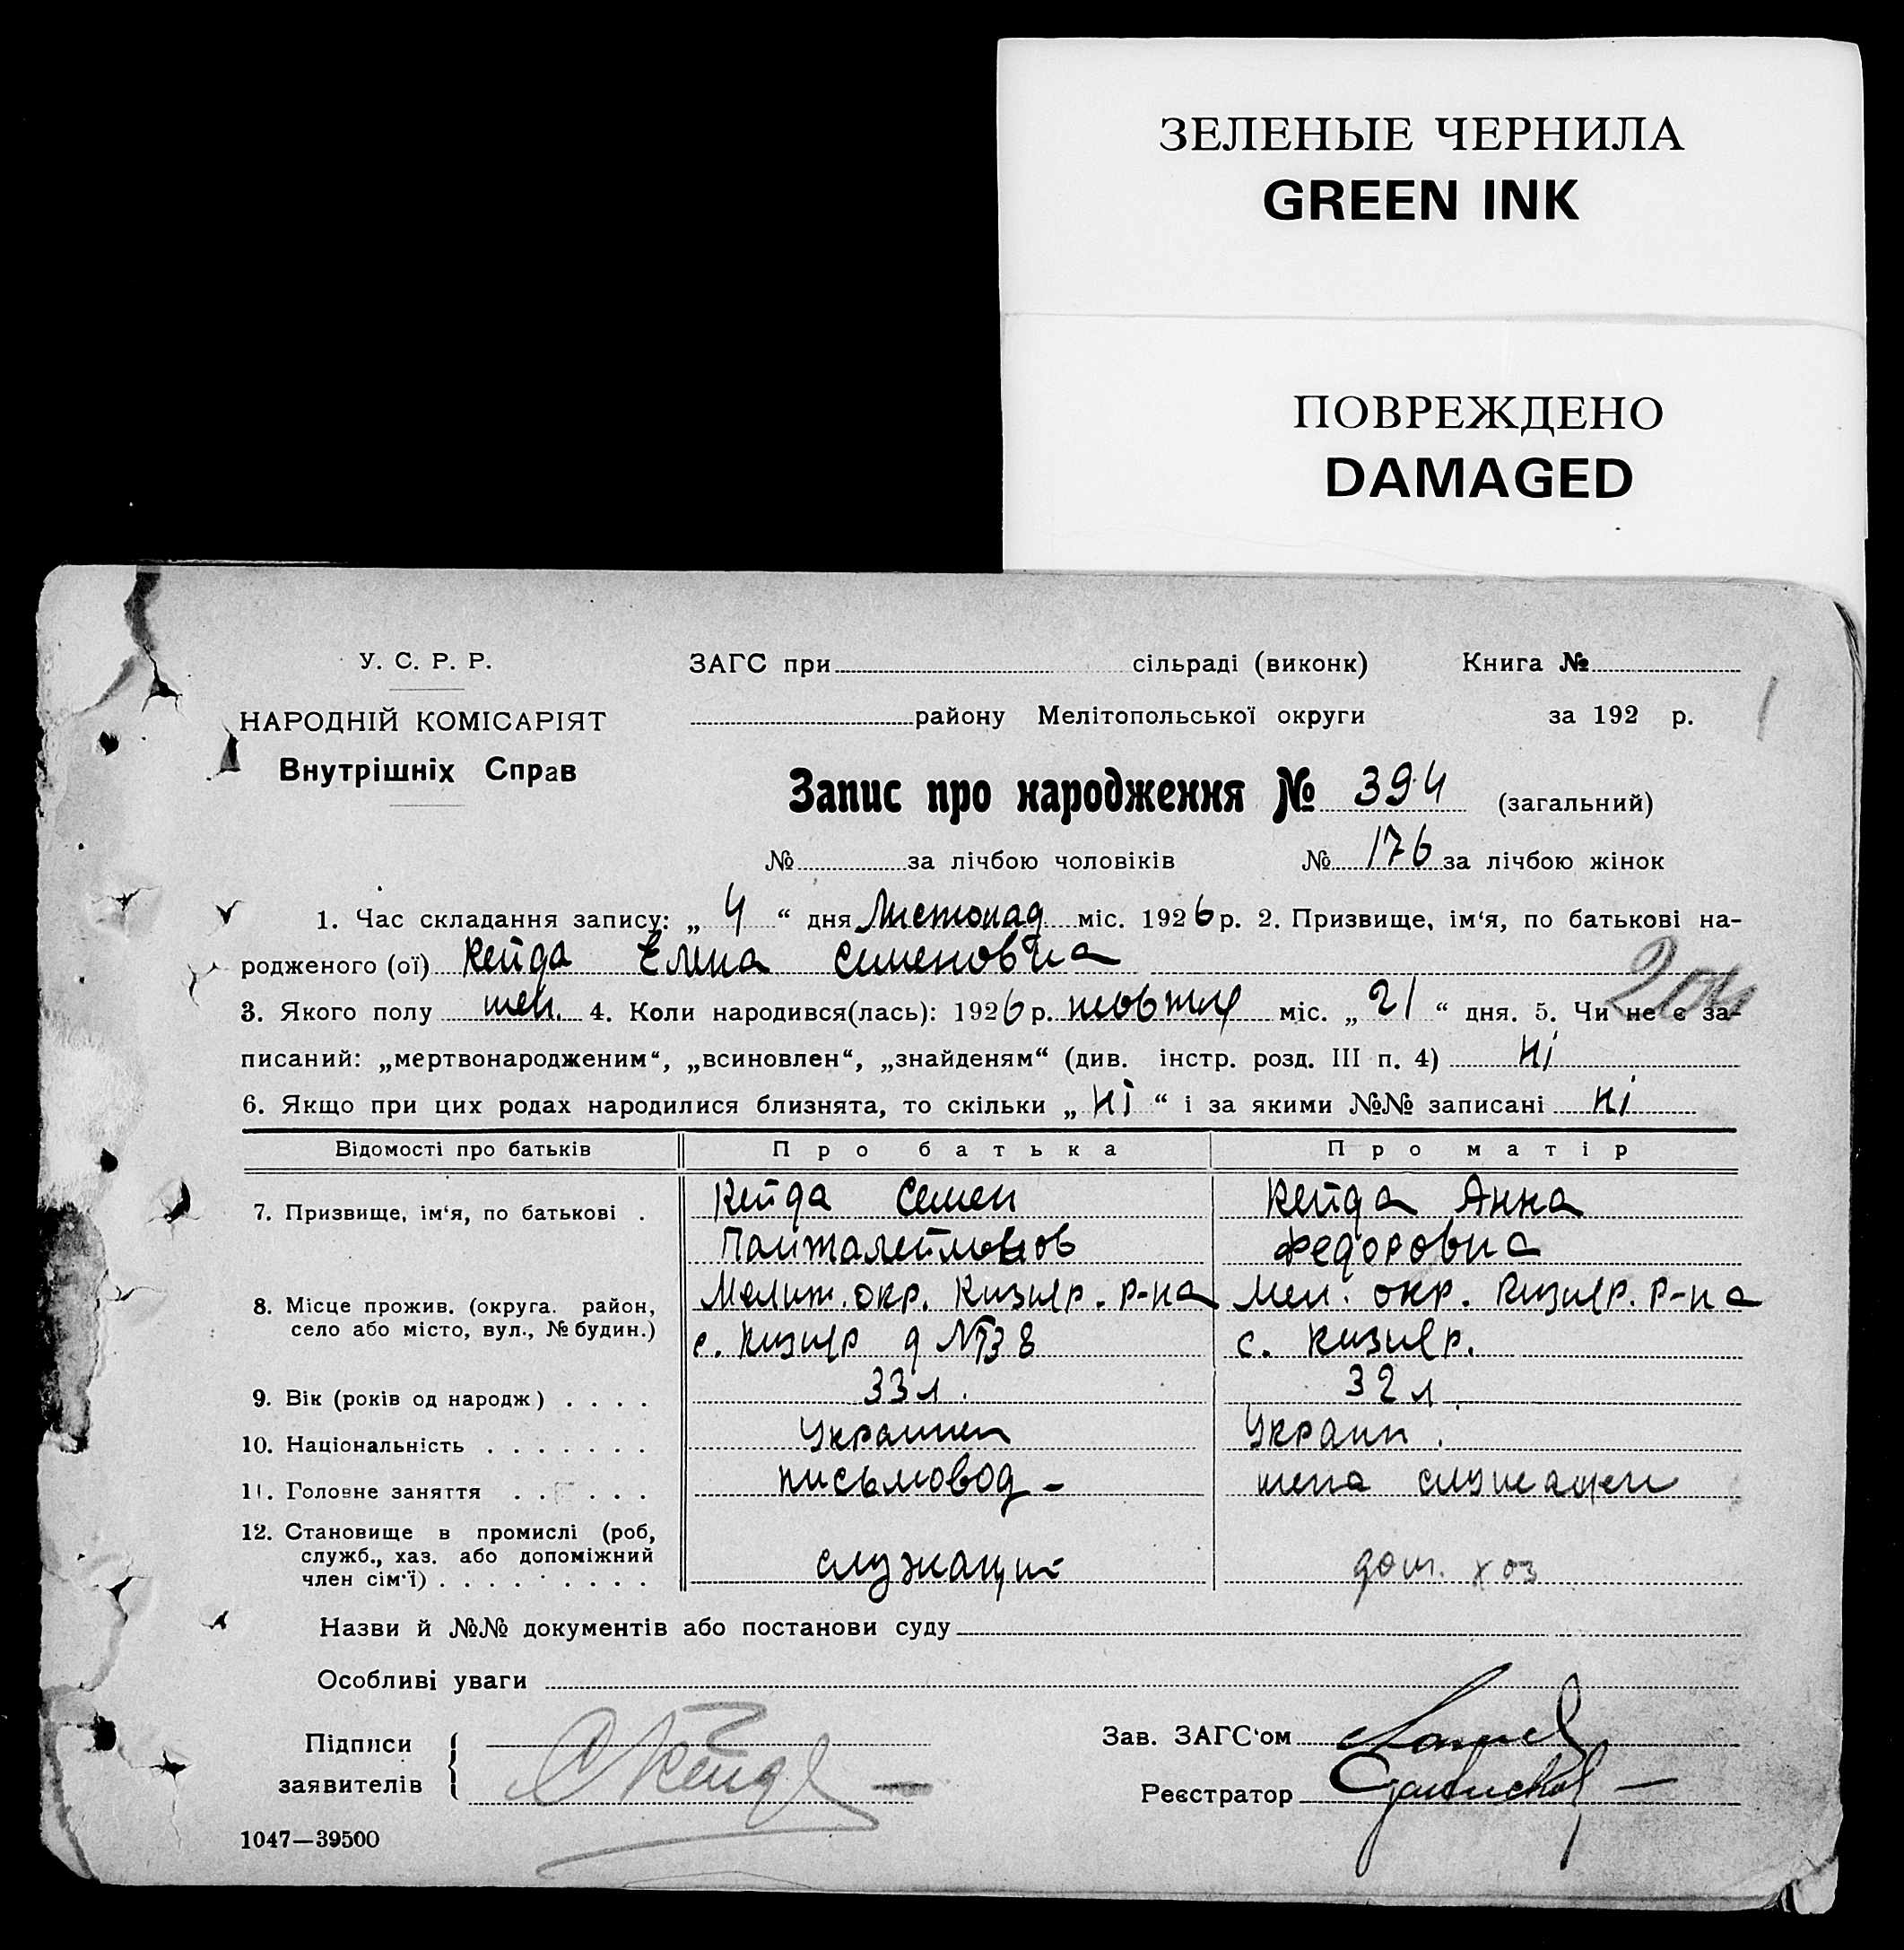 ЗЕЛЕНЫЕ ЧЕРНИЛА
GREEN INK
ПОВРЕЖДЕНО
DAMAGED
У. С. Р. Р. ЗАГС при сільраді (виконк) Книга №
НАРОДНІЙ КОМІСАРІЯТ району Мелітопольської округи за 192 р.
1
Внутрішніх Справ
Запис про народження № 394 (загальний)
№ за лічбою чоловіків № 176 за лічбою жінок
1. Час складання запису: „ 4 “ дня Листопад міс. 1926 р. 2. Призвище, ім‘я, по батькові на-
родженого (ої) Кейда Елена Семеновна
204
3. Якого полу жен. 4. Коли народився(лась): 1926 р. жовтня міс. „ 21 “ дня. 5. Чи не є за-
писаний: „мертвонародженим“, „всиновлен“, „знайденям“ (див. інстр. розд. III п. 4) ні
6. Якщо при цих родах народилися близнята, то скільки „ ні “ і за якими №№ записані ні
Відомості про батьків Про батька Про матір
7. Призвище, ім‘я, по батькові . Кейда Семен Кейда Анна
Панталеймонов Федоровна
8. Місце прожив. (округа. район, Мелит. окр. Кизияр. р-на Мел. окр. Кизияр. р-на
село або місто, вул., № будин.) с. Кизияр д № 38 с. Кизияр.
9. Вік (років од народж) . . . . 33 л. 32 л
10. Національність . . . . . . . Украинец Украин.
11. Головне заняття . . . . . . письмовод - жена служащего
12. Становище в промислі (роб,
служб., хаз. або допоміжний
член сім‘ї) . . . . . . . . . служащий дом. хоз
Назви й №№ документів або постанови суду
Особливі уваги
Підписи Зав. ЗАГС‘ом
заявителів СКейда Реєстратор
1047—39500